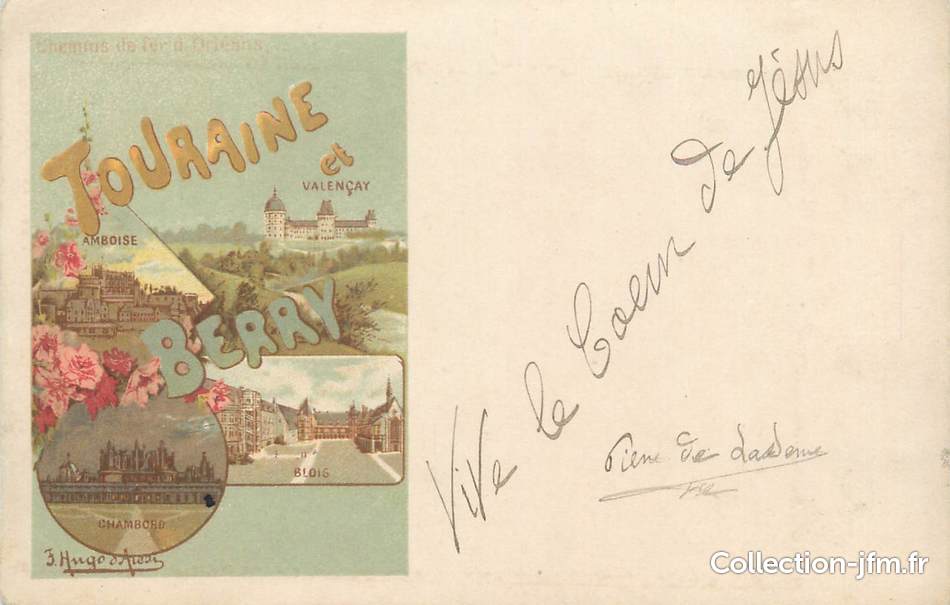 Chemins de fer d'Orléans
TOURAINE
et
VALENÇAY
AMBOISE
BERRY
BLOIS
CHAMBORD
F. Hugo d'Alesi
Vive le Coeur de Jésus
de
Collection-jfm.fr